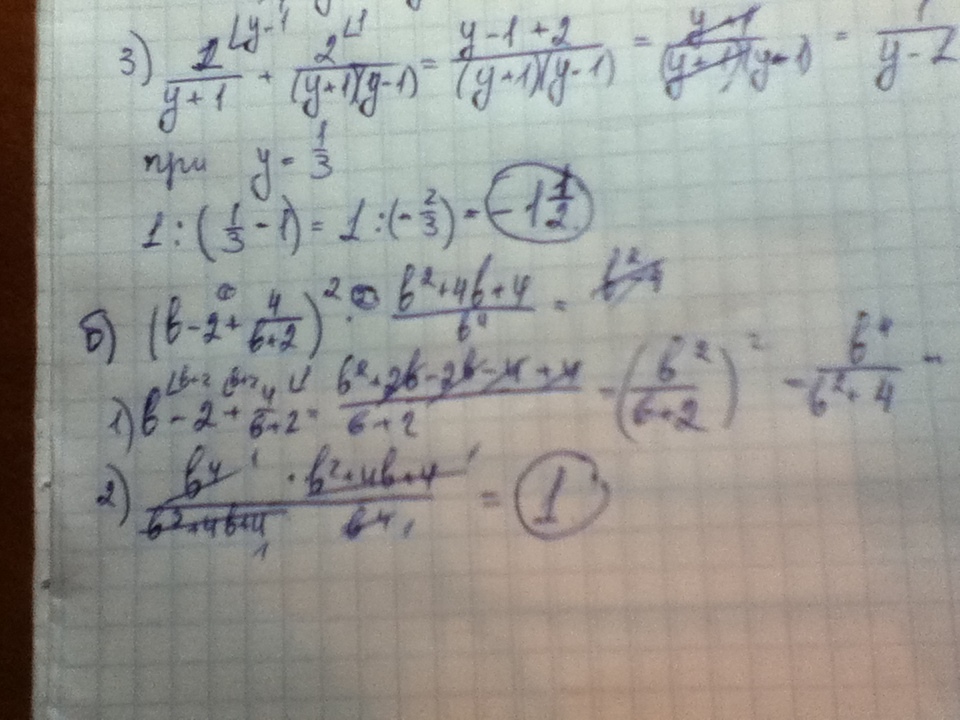 3) 1/(y+1) + 2/((y+1)(y-1)) = (y-1+2)/((y+1)(y-1)) = (y+1)/((y+1)(y-1)) = 1/(y-
при y = 1/3
1:(1/3 - 1) = 1:(-2/3) = -1 1/2
б) (b-2+ 4/(b+2))² · (b²+4b+4)/b⁴ =
1) b-2+ 4/(b+2) = (b²+2b-2b-4+4)/(b+2) = (b²/(b+2))² = b⁴/(b²+4
2) b⁴/(b²+4b+4) · (b²+4b+4)/b⁴ = 1